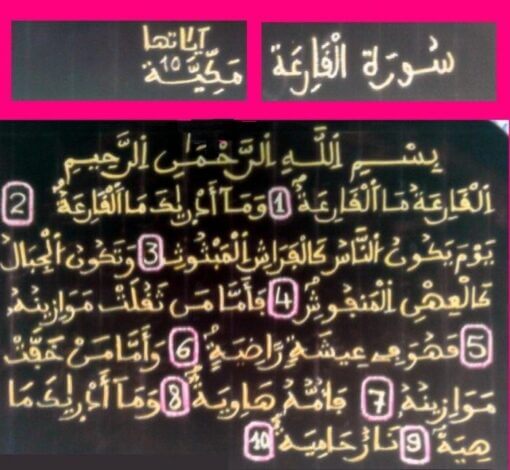 سُورَة الْقَارِعَة
آيَاتها
مَكِّيَّة 10
بِسْمِ اِللَّهِ اِلرَّحْمَٰنِ اِلرَّحِيمِ
اِلْقَارِعَةُ مَا اَلْقَارِعَةُ 1 وَمَآ أَدْرِيٰكَ مَا اَلْقَارِعَةُ 2
يَوْمَ يَكُونُ اُلنَّاسُ كَالْفَرَاشِ اِلْمَبْثُوثِ 3 وَتَكُونُ اُلْجِبَالُ
كَالْعِهْنِ اِلْمَنفُوشِ 4 فَأَمَّا مَن ثَقُلَتْ مَوَازِينُهُ
5 فَهُوَ فِي عِيشَةٍ رَّاضِيَةٍ 6 وَأَمَّا مَنْ خَفَّتْ
مَوَازِينُهُ 7 فَأُمُّهُ هَاوِيَةٌ 8 وَمَآ أَدْرِيٰكَ مَا
هِيَهْ 9 نَارٌ حَامِيَةٌ 10